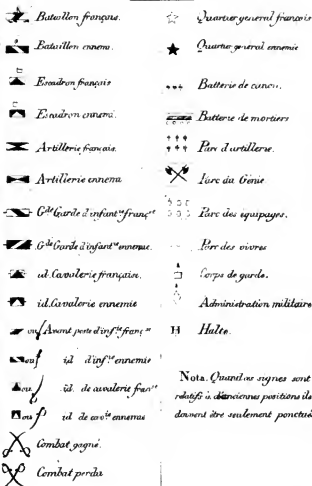 Bataillon français.
Bataillon ennemi.
Escadron français
Escadron ennemi.
Artillerie française.
Artillerie ennemie
Gde Garde d'infantie françse
Gde Garde d'infantie ennemie.
id. Cavalerie française.
id. Cavalerie ennemie
ou Avant poste d'infie franç se
ou id d'infie ennemie
ou id. de cavalerie franse
ou id de cavie ennemie
Combat gagné.
Combat perdu
Quartier général français
Quartier général ennemie
Batterie de canon.
Batterie de mortiers
Parc d'artillerie.
Parc du Génie
Parc des équipages.
Parc des vivres
Corps de garde.
Administration militaire
H Halte.
Nota. Quand ces signes sont
relatifs à d'anciennes positions ils
doivent être seulement ponctués